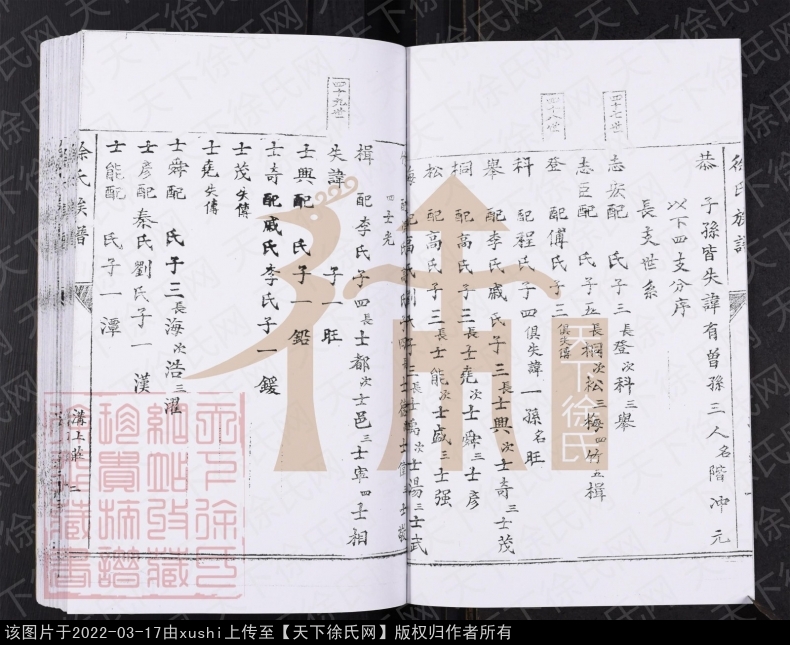 徐氏族譜
恭 子孫皆失諱有曾孫三人名階冲元
以下四支分序
長支世系
四十七世
志宏配 氏子三長登次科三舉
志臣配 氏子五長桐次松三梅四竹五楫
四十八世
登 配傅氏子三俱失傳
科 配程氏子四俱失諱一孫名旺
舉 配李氏戚氏子三長士興次士奇三士茂
桐 配高氏子三長士堯次士舜三士彥
松 配高氏子三長士能次士盛三士强
梅 次士湯三士武
竹 配
楫 配李氏子四長士都次士邑三士寧四士相
四十九世
失諱 子一旺
士興配 氏子一鉛
士奇配戚氏李氏子一鍰
士茂失傳
士堯失傳
士舜配 氏子三長海次浩三濯
士彥配秦氏劉氏子一漢
士能配 氏子一潭
徐氏族譜
溝上莊 二
天下徐氏
天下徐氏网
该图片于2022-03-17由xushi上传至【天下徐氏网】版权归作者所有